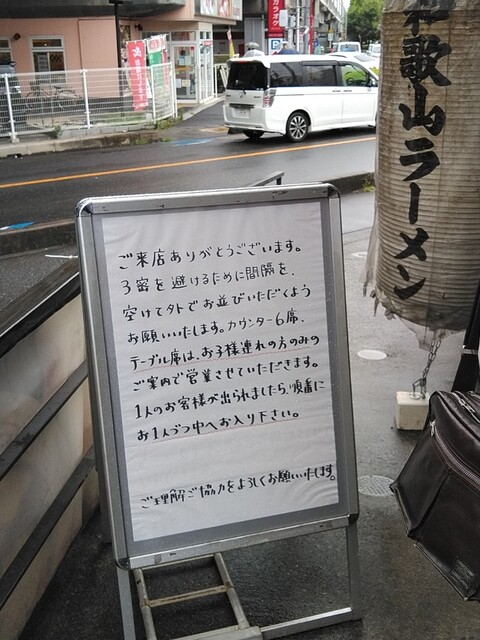 カラオケ
和歌山ラーメン
ご来店ありがとうございます。
3密を避けるために間隔を、
空けて外でお並びいただくよう
お願いいたします。カウンター6席、
テーブル席は、お子様連れの方のみの
ご案内で営業させていただきます。
1人のお客様が出られましたら、順番に
お1人づつ中へお入り下さい。
ご理解ご協力をよろしくお願いいたします。